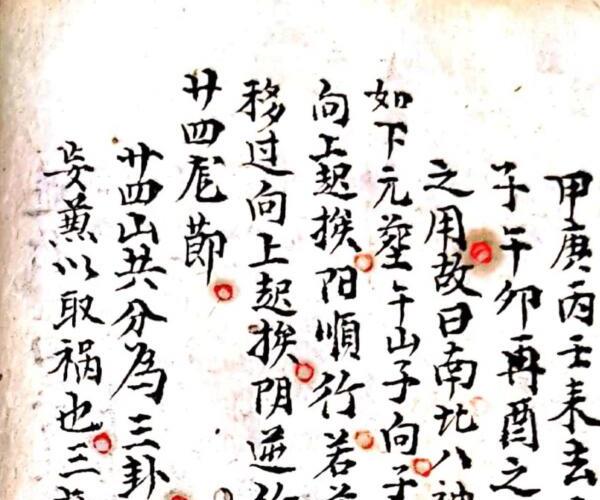 甲庚丙壬来去
子午卯再酉之
之用故曰南北八神
如下元塟午山子向子
向上起挨阳順行若
移过向上起挨阴逆行
廿四尨節
廿四山共分為三卦
妄兼以取禍也三